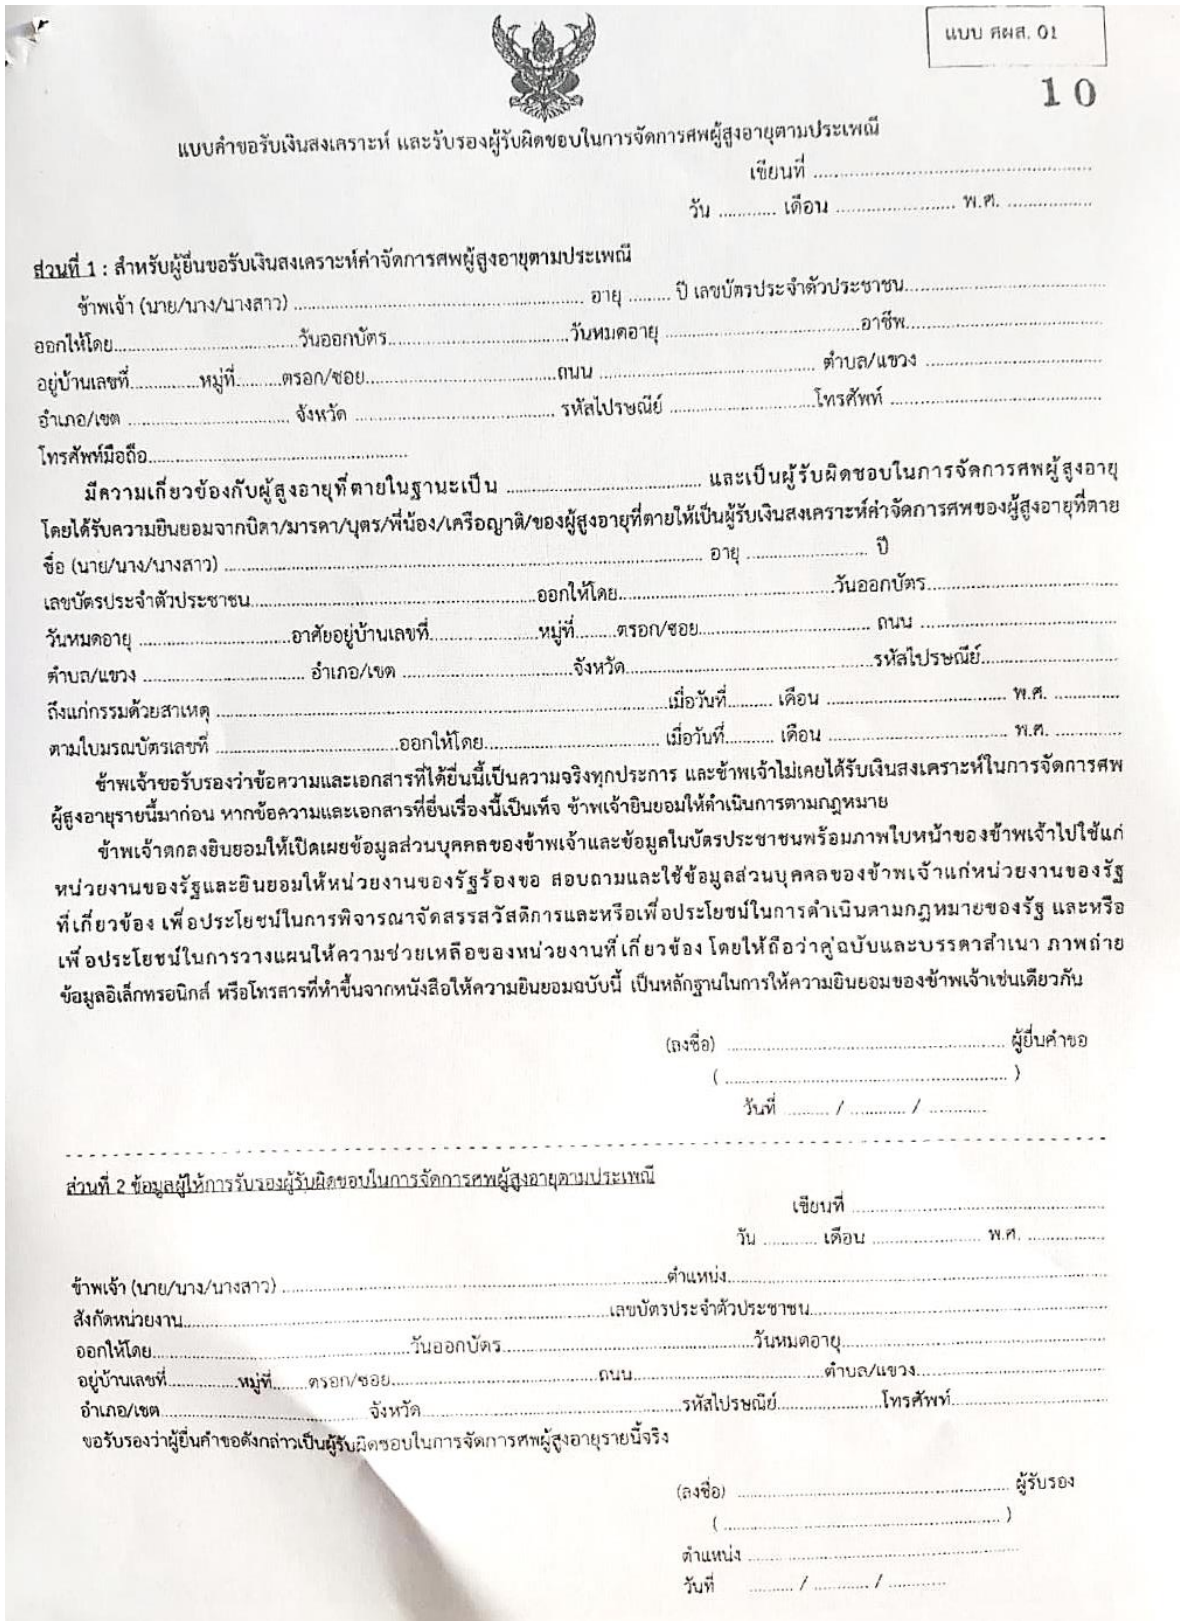 แบบ ศผส. 01
10
แบบคำขอรับเงินสงเคราะห์ และรับรองผู้รับผิดชอบในการจัดการศพผู้สูงอายุตามประเพณี
เขียนที่ ........................................................
วัน ............ เดือน ........................ พ.ศ. .................
ส่วนที่ 1 : สำหรับผู้ยื่นขอรับเงินสงเคราะห์ค่าจัดการศพผู้สูงอายุตามประเพณี
ข้าพเจ้า (นาย/นาง/นางสาว) .......................................................... อายุ ......... ปี เลขบัตรประจำตัวประชาชน........................................
ออกให้โดย.....................................วันออกบัตร.....................................วันหมดอายุ .......................................อาชีพ........................................
อยู่บ้านเลขที่..............หมู่ที่..........ตรอก/ซอย.......................................ถนน ............................................ ตำบล/แขวง ....................................
อำเภอ/เขต ................................. จังหวัด ........................................ รหัสไปรษณีย์ ..............................โทรศัพท์ ...........................................
โทรศัพท์มือถือ.....................................................
มีความเกี่ยวข้องกับผู้สูงอายุที่ตายในฐานะเป็น ........................................ และเป็นผู้รับผิดชอบในการจัดการศพผู้สูงอายุ
โดยได้รับความยินยอมจากบิดา/มารดา/บุตร/พี่น้อง/เครือญาติ/ของผู้สูงอายุที่ตายให้เป็นผู้รับเงินสงเคราะห์ค่าจัดการศพของผู้สูงอายุที่ตาย
ชื่อ (นาย/นาง/นางสาว) ................................................................................................ อายุ ......................... ปี
เลขบัตรประจำตัวประชาชน..........................................................ออกให้โดย............................................วันออกบัตร.......................................
วันหมดอายุ ...............................อาศัยอยู่บ้านเลขที่......................หมู่ที่.........ตรอก/ซอย................................... ถนน ........................................
ตำบล/แขวง ................................. อำเภอ/เขต ...................................จังหวัด..................................................รหัสไปรษณีย์............................
ถึงแก่กรรมด้วยสาเหตุ ............................................................................................เมื่อวันที่.......... เดือน ..................................... พ.ศ. .............
ตามใบมรณบัตรเลขที่ .....................................ออกให้โดย.................................... เมื่อวันที่.......... เดือน ..................................... พ.ศ. .............
ข้าพเจ้าขอรับรองว่าข้อความและเอกสารที่ได้ยื่นนี้เป็นความจริงทุกประการ และข้าพเจ้าไม่เคยได้รับเงินสงเคราะห์ในการจัดการศพ
ผู้สูงอายุรายนี้มาก่อน หากข้อความและเอกสารที่ยื่นเรื่องนี้เป็นเท็จ ข้าพเจ้ายินยอมให้ดำเนินการตามกฎหมาย
ข้าพเจ้าตกลงยินยอมให้เปิดเผยข้อมูลส่วนบุคคลของข้าพเจ้าและข้อมูลในบัตรประชาชนพร้อมภาพใบหน้าของข้าพเจ้าไปใช้แก่
หน่วยงานของรัฐและยินยอมให้หน่วยงานของรัฐร้องขอ สอบถามและใช้ข้อมูลส่วนบุคคลของข้าพเจ้าแก่หน่วยงานของรัฐ
ที่เกี่ยวข้อง เพื่อประโยชน์ในการพิจารณาจัดสรรสวัสดิการและหรือเพื่อประโยชน์ในการดำเนินตามกฎหมายของรัฐ และหรือ
เพื่อประโยชน์ในการวางแผนให้ความช่วยเหลือของหน่วยงานที่เกี่ยวข้อง โดยให้ถือว่าคู่ฉบับและบรรดาสำเนา ภาพถ่าย
ข้อมูลอิเล็กทรอนิกส์ หรือโทรสารที่ทำขึ้นจากหนังสือให้ความยินยอมฉบับนี้ เป็นหลักฐานในการให้ความยินยอมของข้าพเจ้าเช่นเดียวกัน
(ลงชื่อ) ........................................................ ผู้ยื่นคำขอ
( ......................................................... )
วันที่ ......... / ............ / ............
ส่วนที่ 2 ข้อมูลผู้ให้การรับรองผู้รับผิดชอบในการจัดการศพผู้สูงอายุตามประเพณี
เขียนที่ ....................................................
วัน ........... เดือน ...................... พ.ศ. ................
ข้าพเจ้า (นาย/นาง/นางสาว) ..............................................................................ตำแหน่ง..............................................................................
สังกัดหน่วยงาน.......................................................................................เลขบัตรประจำตัวประชาชน.............................................................
ออกให้โดย....................................................วันออกบัตร...................................................วันหมดอายุ......................................................
อยู่บ้านเลขที่..............หมู่ที่.......ตรอก/ซอย..........................................ถนน..............................................ตำบล/แขวง.......................................
อำเภอ/เขต.......................................... จังหวัด.....................................................รหัสไปรษณีย์.....................โทรศัพท์................................
ขอรับรองว่าผู้ยื่นคำขอดังกล่าวเป็นผู้รับผิดชอบในการจัดการศพผู้สูงอายุรายนี้จริง
(ลงชื่อ) ....................................................... ผู้รับรอง
( .......................................................... )
ตำแหน่ง .......................................................
วันที่ ......... / ............ / ............